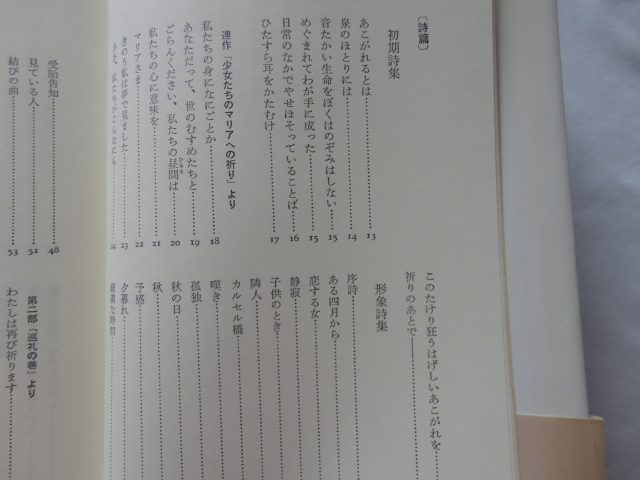 ［詩篇］
初期詩集
あこがれるとは……13
泉のほとりには……14
音たかい生命をぼくはのぞみはしない……15
めぐまれてわが手に成った……15
日常のなかでやせほそっていることば……16
ひたすら耳をかたむけ……17
連作「少女たちのマリアへの祈り」より
私たちの身になにごとか……18
あなただって、世のむすめたちと……19
ごらんください、私たちの昼間は……20
ひるま
私たちの心に意味を……21
マリアさま……22
きのう私は夢で見ました……23
24
このたけり狂うはげしいあこがれを……
祈りのあとで——……
形象詩集
序詩……
ある四月から……
恋する女……
静寂……
子供のとき……
隣人……
カルセル橋……
嘆き……
孤独……
秋の日……
秋……
予感……
夕暮れ……
厳粛な時間……
受胎告知……48
見ている人……51
結びの曲……53
第二部「巡礼の巻」より
わたしは再び祈ります……